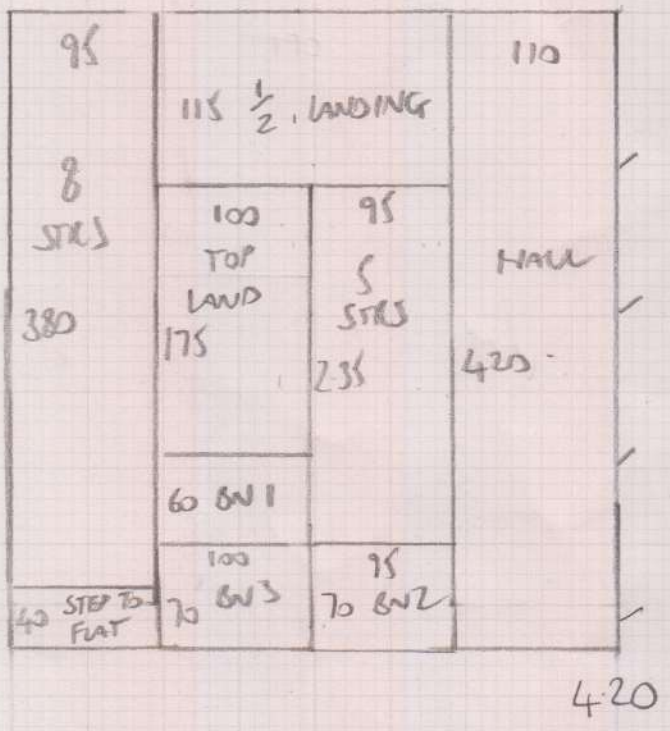 95
8
STRS
380
40 STEP TO
FLAT
115 1/2 LANDING
100
TOP
LAND
175
60 BN 1
100
70 BN3
95
5
STRS
2.35
95
70 BN2
110
HALL
420
4.20